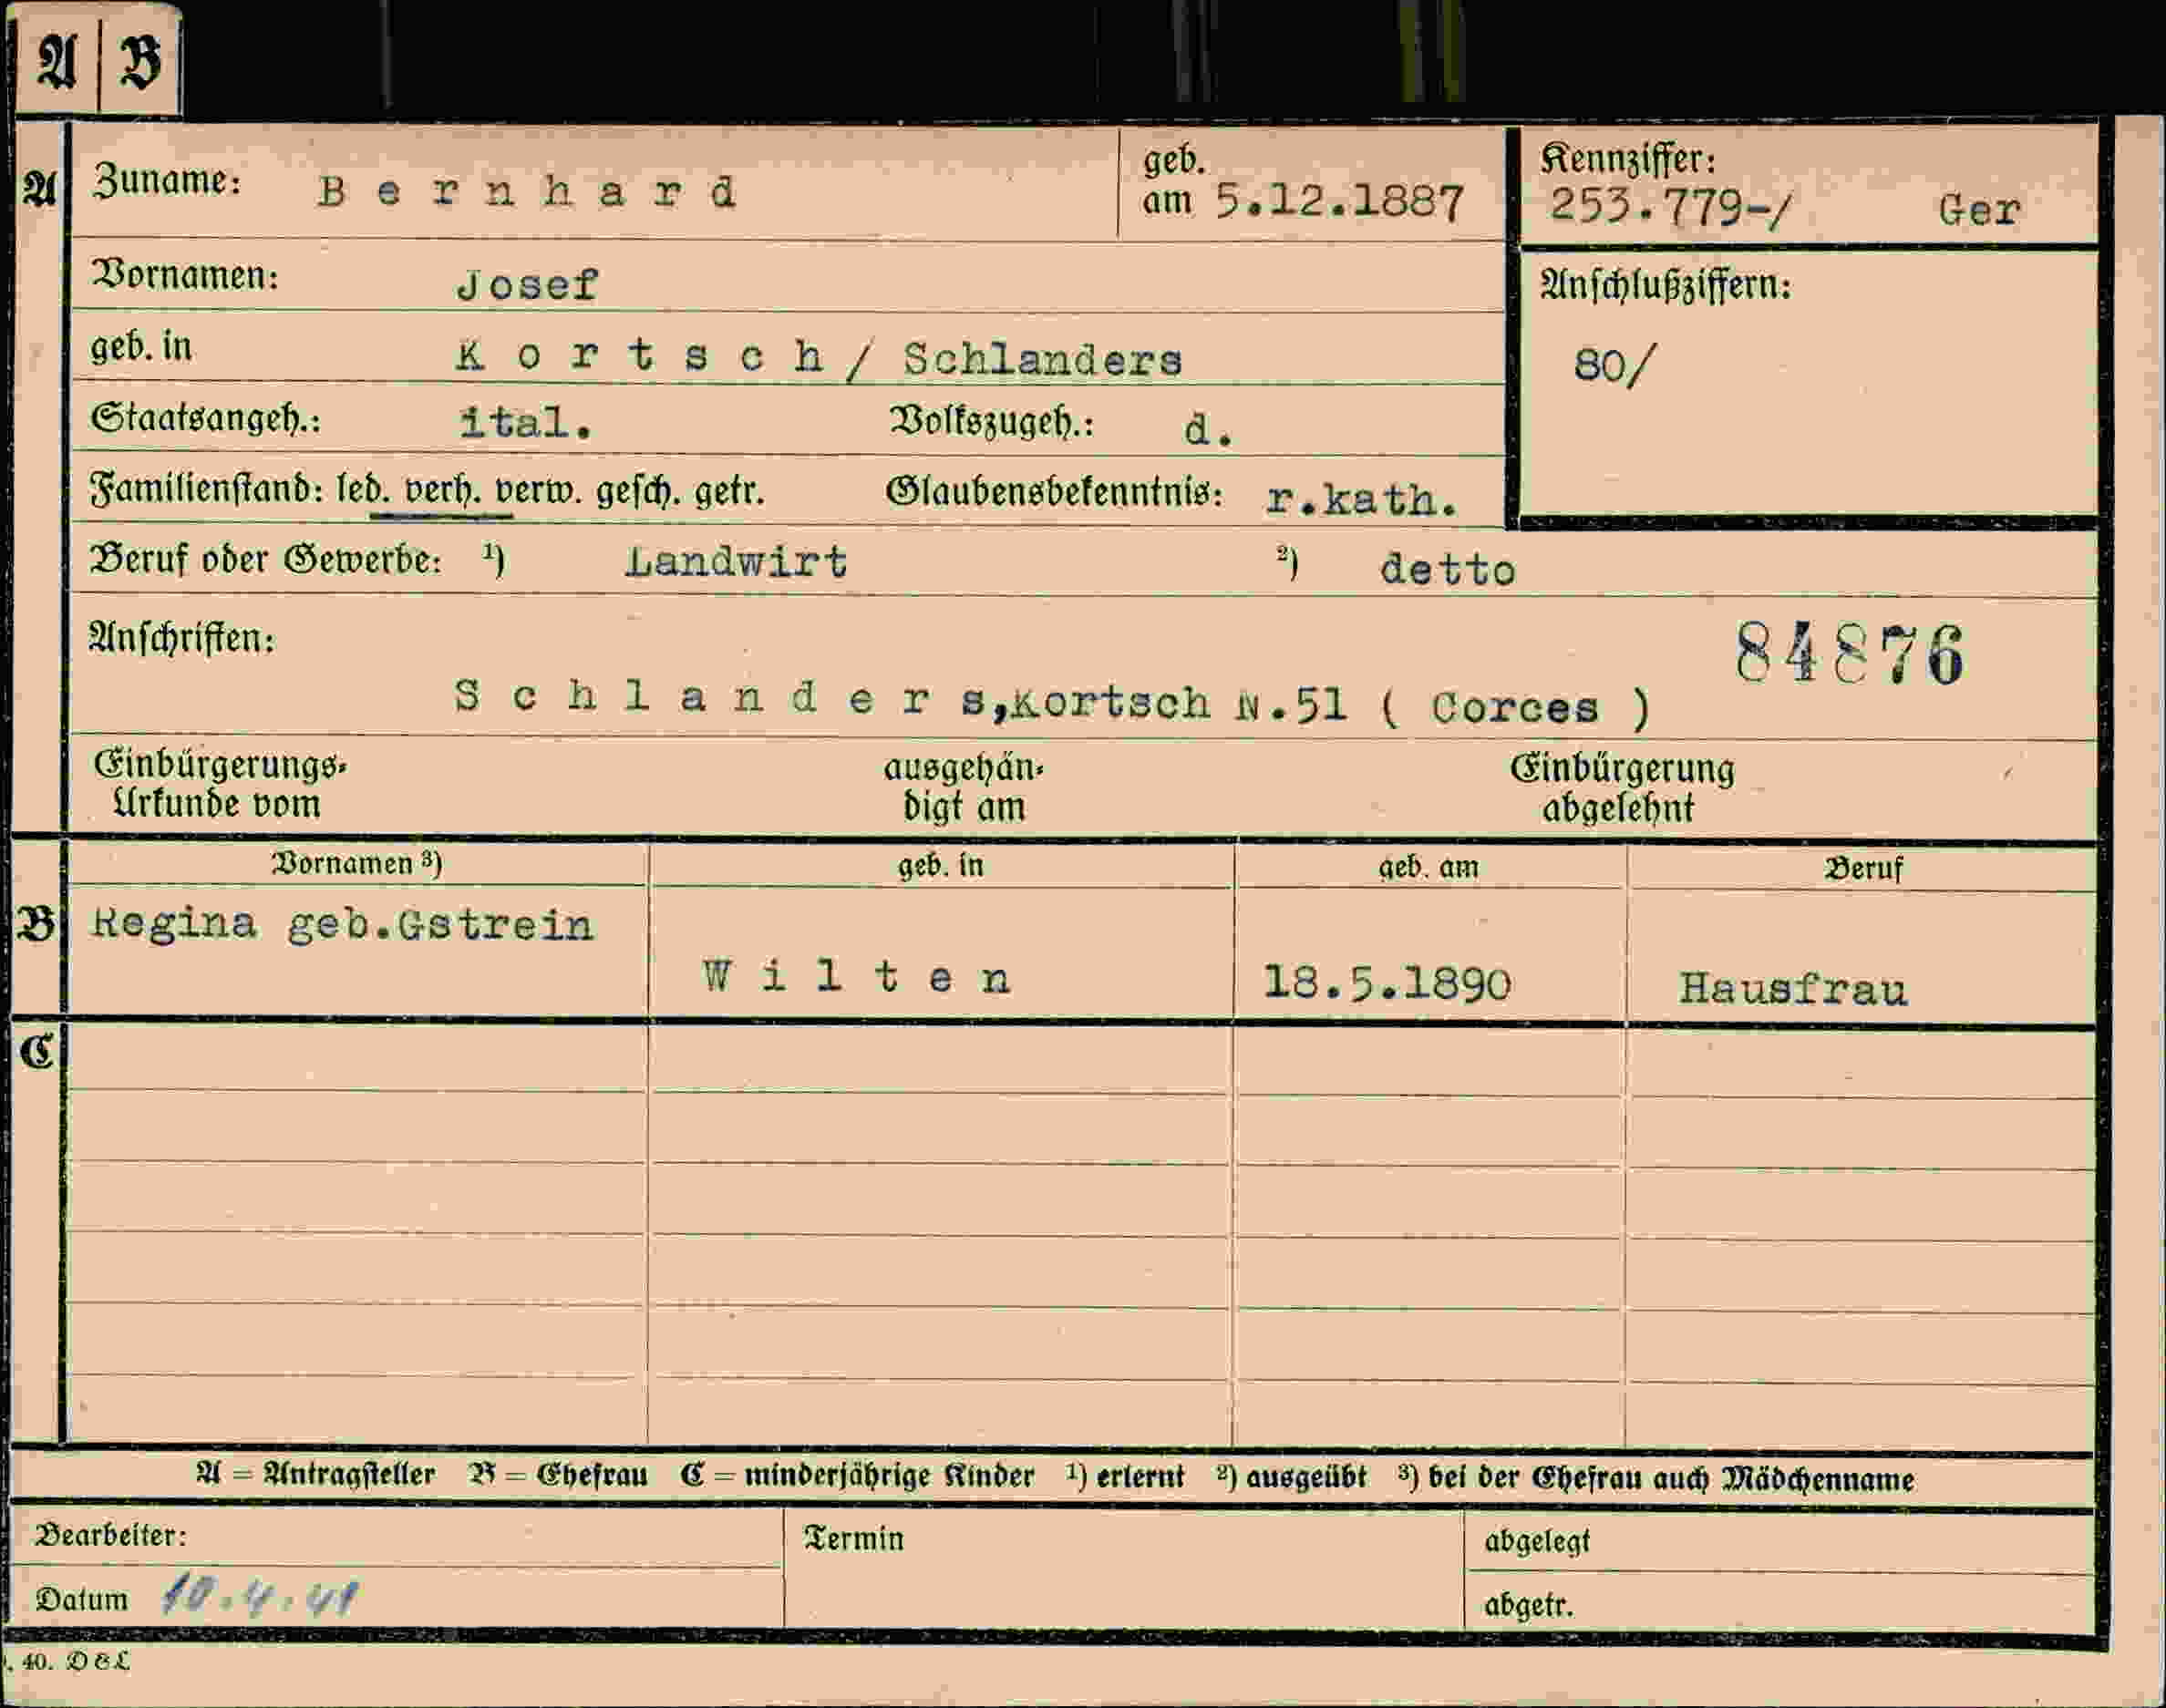 A B
A Zuname: Bernhard geb. am 5.12.1887 Kennziffer: 253.779-/ Ger
Vornamen: Josef Anschlußziffern:
geb. in Kortsch/ Schlanders 80/
Staatsangeh.: ital. Volkszugeh.: d.
Familienstand: led. verh. verw. gesch. getr. Glaubensbekenntnis: r.kath.
Beruf oder Gewerbe: ¹) Landwirt ²) detto
Anschriften: 84876
Schlanders,Kortsch N.51 ( Corces )
Einbürgerungs- ausgehän- Einbürgerung
Urkunde vom digt am abgelehnt
Vornamen ³) geb. in geb. am Beruf
B Regina geb.Gstrein
Wilten 18.5.1890 Hausfrau
C
A = Antragsteller B = Ehefrau C = minderjährige Kinder ¹) erlernt ²) ausgeübt ³) bei der Ehefrau auch Mädchenname
Bearbeiter: Termin abgelegt
Datum 10.4.41 abgetr.
. 40. D & L